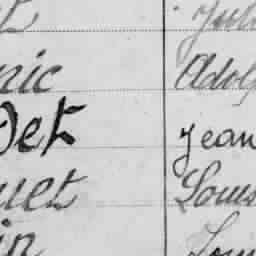 t Jul
nic Adolp
Det Jean
uet Louis
in Lou